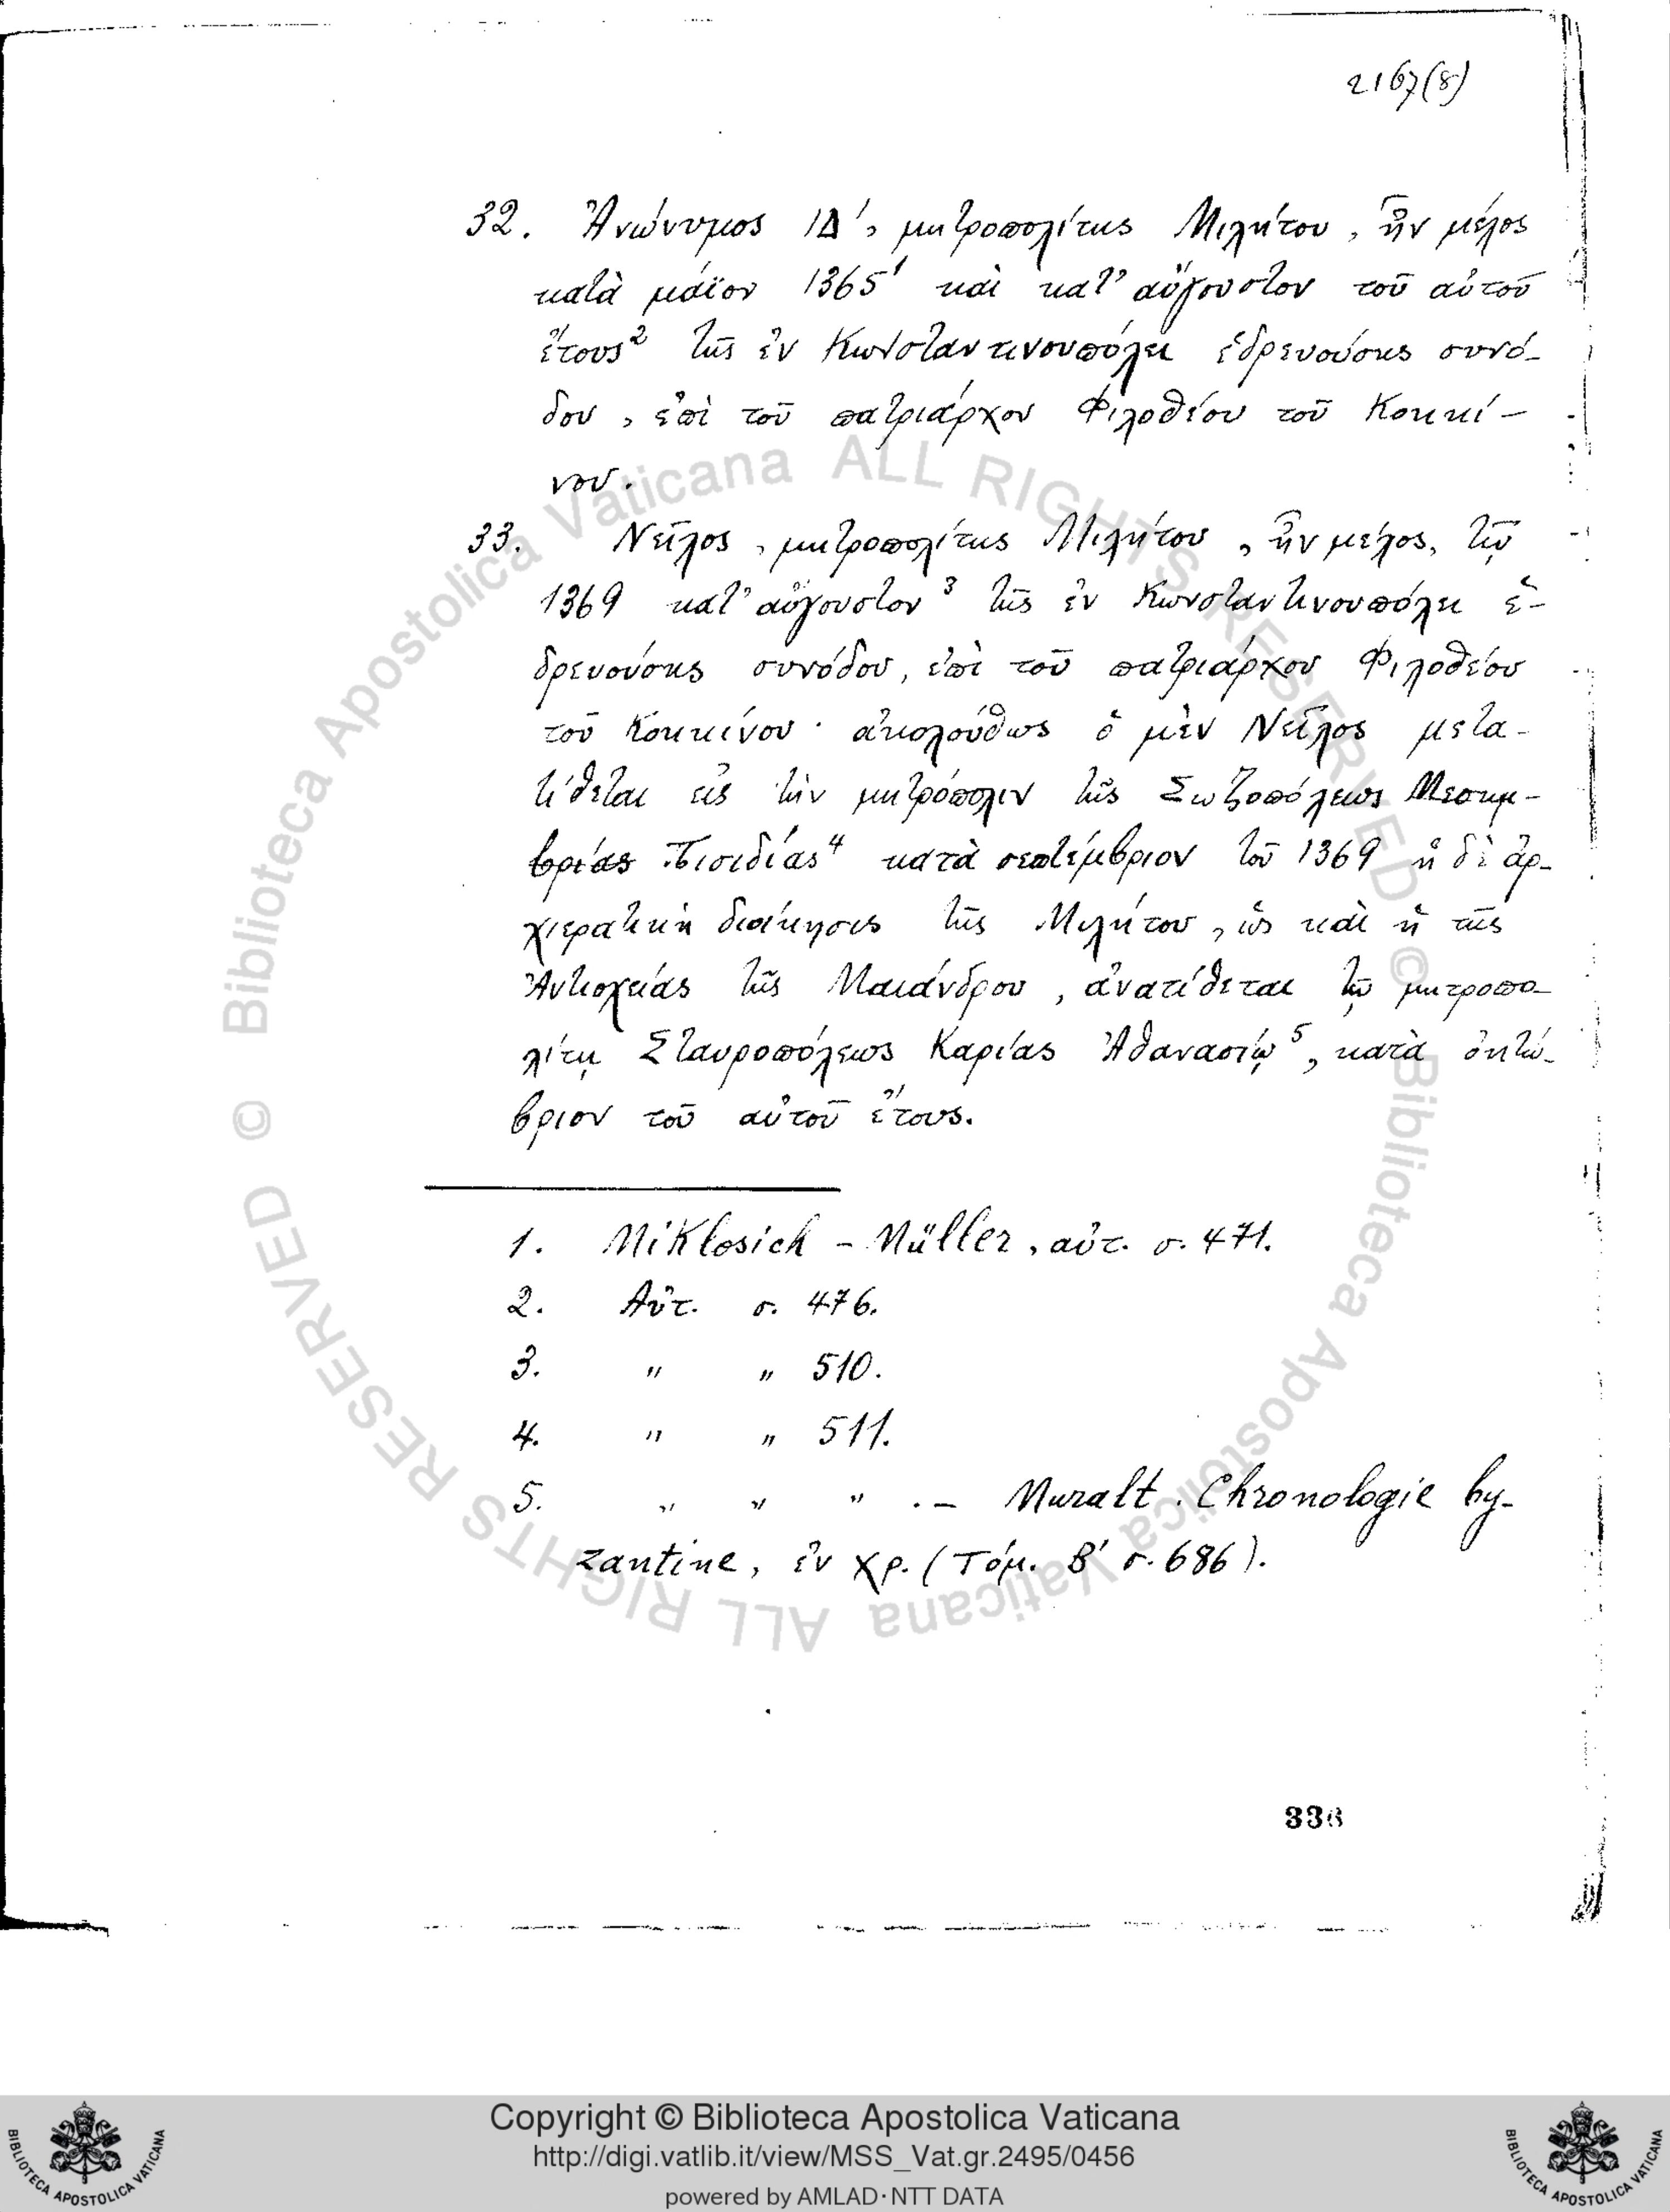 2167(8)
32. Ἀνώνυμος ΙΔ', μητροπολίτης Μιλήτου, ἦν μέλος
κατὰ μάϊον 1365¹ καὶ κατ' αὔγουστον τοῦ αὐτοῦ
ἔτους² τῆς ἐν Κωνσταντινουπόλει ἑδρευούσης συνό-
δου, ἐπὶ τοῦ πατριάρχου Φιλοθέου τοῦ Κοκκί-
νου.
33. Νεῖλος, μητροπολίτης Μιλήτου, ἦν μέλος, τῷ
1369 κατ' αὔγουστον³ τῆς ἐν Κωνσταντινουπόλει ἑ-
δρευούσης συνόδου, ἐπὶ τοῦ πατριάρχου Φιλοθέου
τοῦ Κοκκίνου· ἀκολούθως ὁ μὲν Νεῖλος μετα-
τίθεται εἰς τὴν μητρόπολιν τῆς Σωζοπόλεως Μεσημ-
βρίας Πισιδίας⁴ κατὰ σεπτέμβριον τοῦ 1369 ἡ δὲ ἀρ-
χιερατικὴ διοίκησις τῆς Μιλήτου, ὡς καὶ ἡ τῆς
Ἀντιοχείας τῆς Μαιάνδρου, ἀνατίθεται τῷ μητροπο-
λίτῃ Σταυροπόλεως Καρίας Ἀθανασίῳ⁵, κατὰ ὀκτώ-
βριον τοῦ αὐτοῦ ἔτους.
1. Miklosich - Müller, αὐτ. σ. 471.
2. Αὐτ. σ. 476.
3. " " 510.
4. " " 511.
5. " " " . – Muralt. Chronologie by-
zantine, ἐν χρ. (Τόμ. Β' σ. 686).
336
© Biblioteca Apostolica Vaticana ALL RIGHTS RESERVED © Biblioteca Apostolica Vaticana ALL RIGHTS RESERVED
Copyright © Biblioteca Apostolica Vaticana
http://digi.vatlib.it/view/MSS_Vat.gr.2495/0456
powered by AMLAD·NTT DATA
BIBLIOTECA APOSTOLICA VATICANA
BIBLIOTECA APOSTOLICA VATICANA